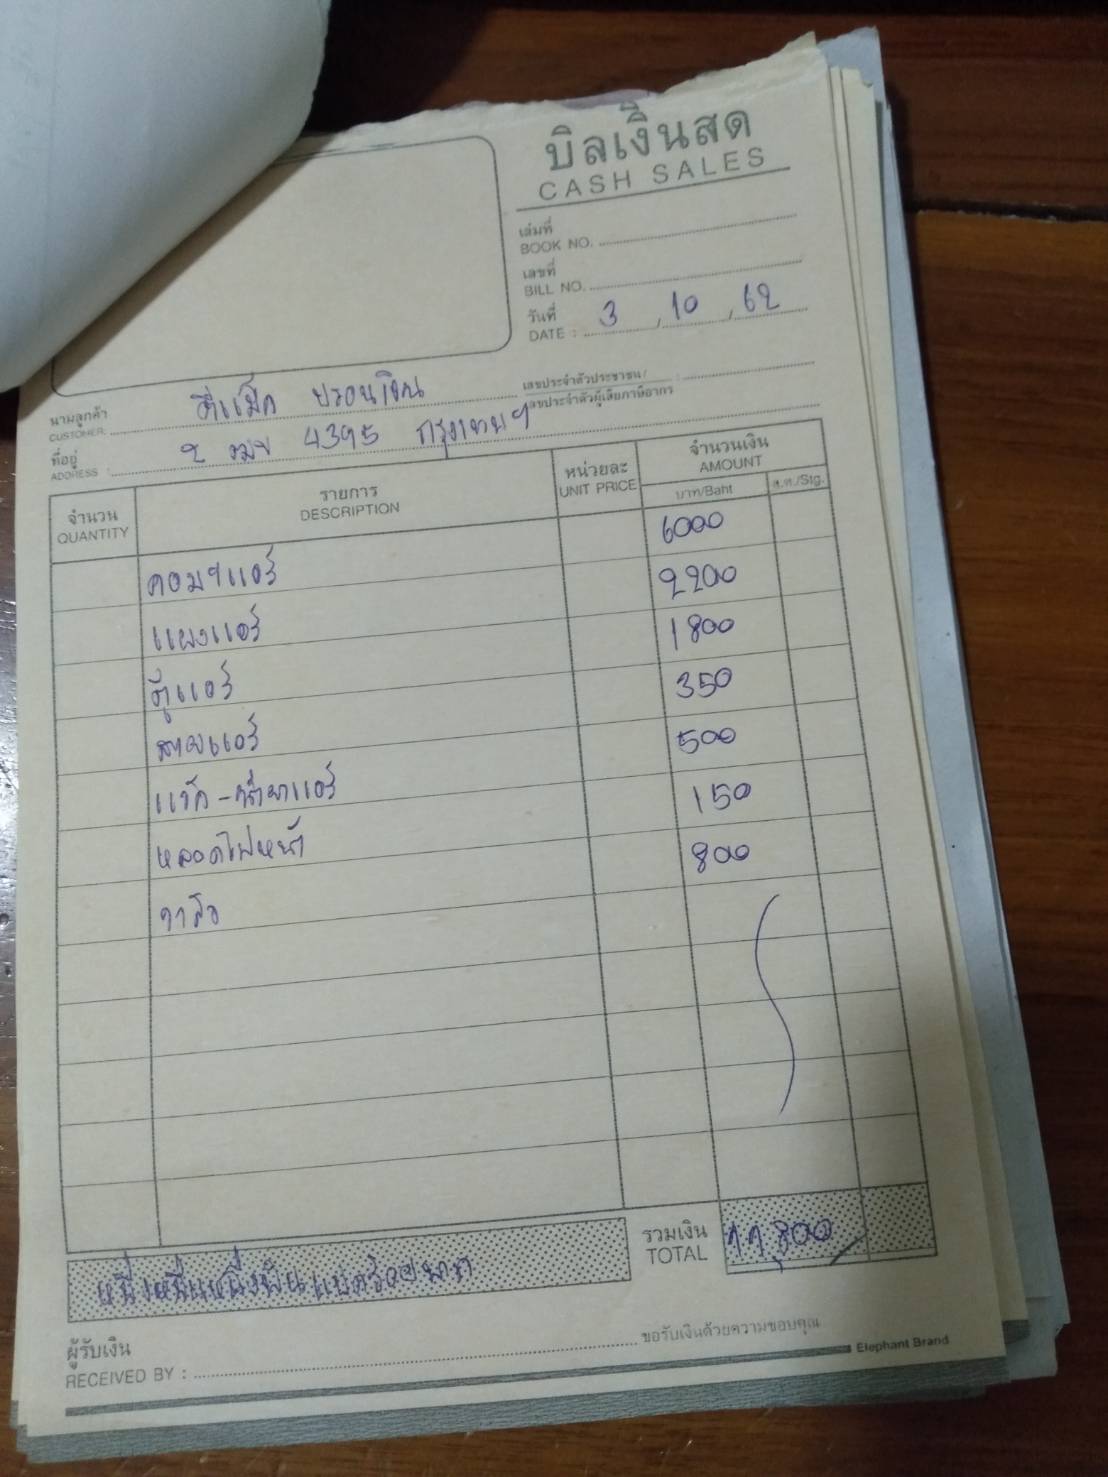 บิลเงินสด
CASH SALES
เล่มที่
BOOK NO.
เลขที่
BILL NO.
วันที่
DATE : 3 , 10 , 62
นามลูกค้า ตี๋แม็ค
CUSTOMER.
เลขประจำตัวประชาชน/ :
เลขประจำตัวผู้เสียภาษีอากร
ที่อยู่ 2 ฒฆ 4395 กรุงเทพฯ
ADDRESS :
จำนวน
QUANTITY
รายการ
DESCRIPTION
หน่วยละ
UNIT PRICE
จำนวนเงิน
AMOUNT
บาท/Baht ส.ต./Stg.
คอมฯแอร์ 6000
แผงแอร์ 2200
ตู้แอร์ 1800
สายแอร์ 350
แว๊ค-น้ำยาแอร์ 500
หลอดไฟหน้า 150
กาลิ่อ 800
หนึ่งหมื่นหนึ่งพันแปดร้อยบาท
รวมเงิน
TOTAL
11,800
ผู้รับเงิน
RECEIVED BY :
ขอรับเงินด้วยความขอบคุณ
Elephant Brand